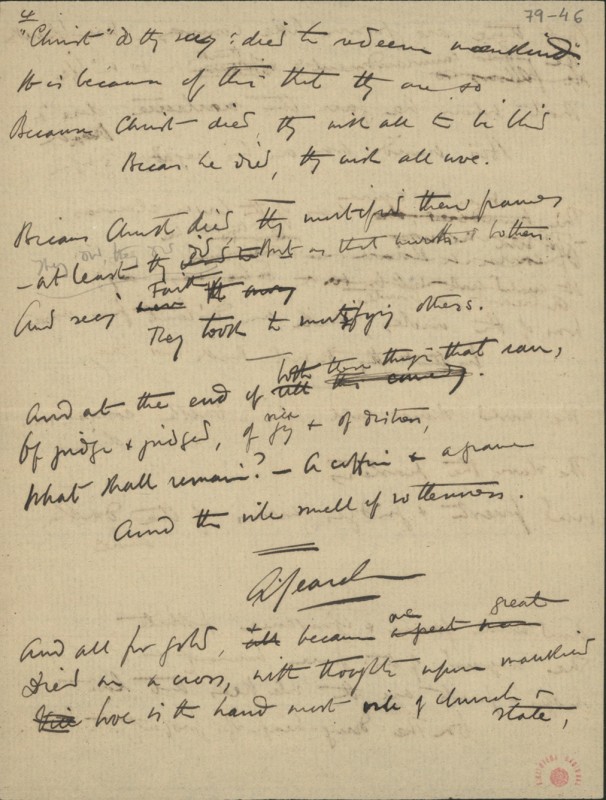 79-46
4
"Christ" do they say: died to redeem mankind".
It is because of this that they are so
Because Christ died, they wish all to be
Because he died, they wish all woe.
Because Christ died they mortified their frames
– at least they did But as that bothers
And seeing Faith
They took to mortifying others.
And at the end of both these things that seem,
Of judge & judged, of joy & of distress,
What shall remain? – A coffin & a grave
And the vile smell of rottenness.
A. Search
And all for gold, & because one great
Died on a cross, with thoughts upon mankind
Love is the hand most vile of church &
state,